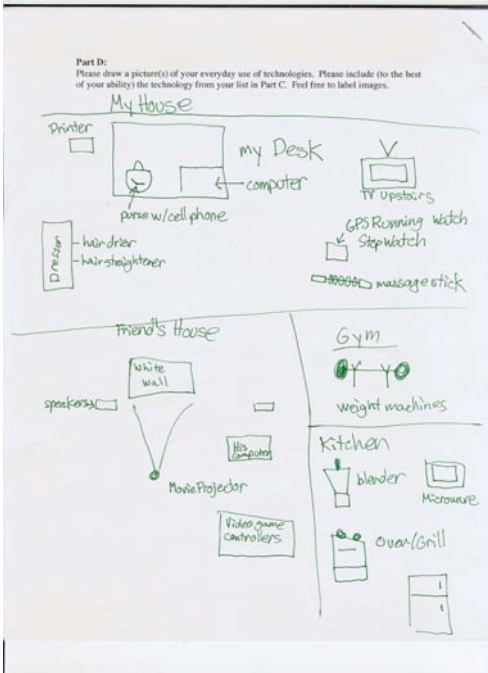 Part D:
Please draw a picture(s) of your everyday use of technologies. Please include (to the best
of your ability) the technology from your list in Part C. Feel free to label images.
My House
Printer
my Desk
computer
purse w/cell phone
TV upstairs
GPS Running Watch
Stop Watch
Dresser
hair drier
hair straightener
massage stick
Friend's House
White
Wall
speakers
His
Computer
Movie Projector
Video game
controllers
Gym
weight machines
Kitchen
blender
Microwave
Oven/Grill